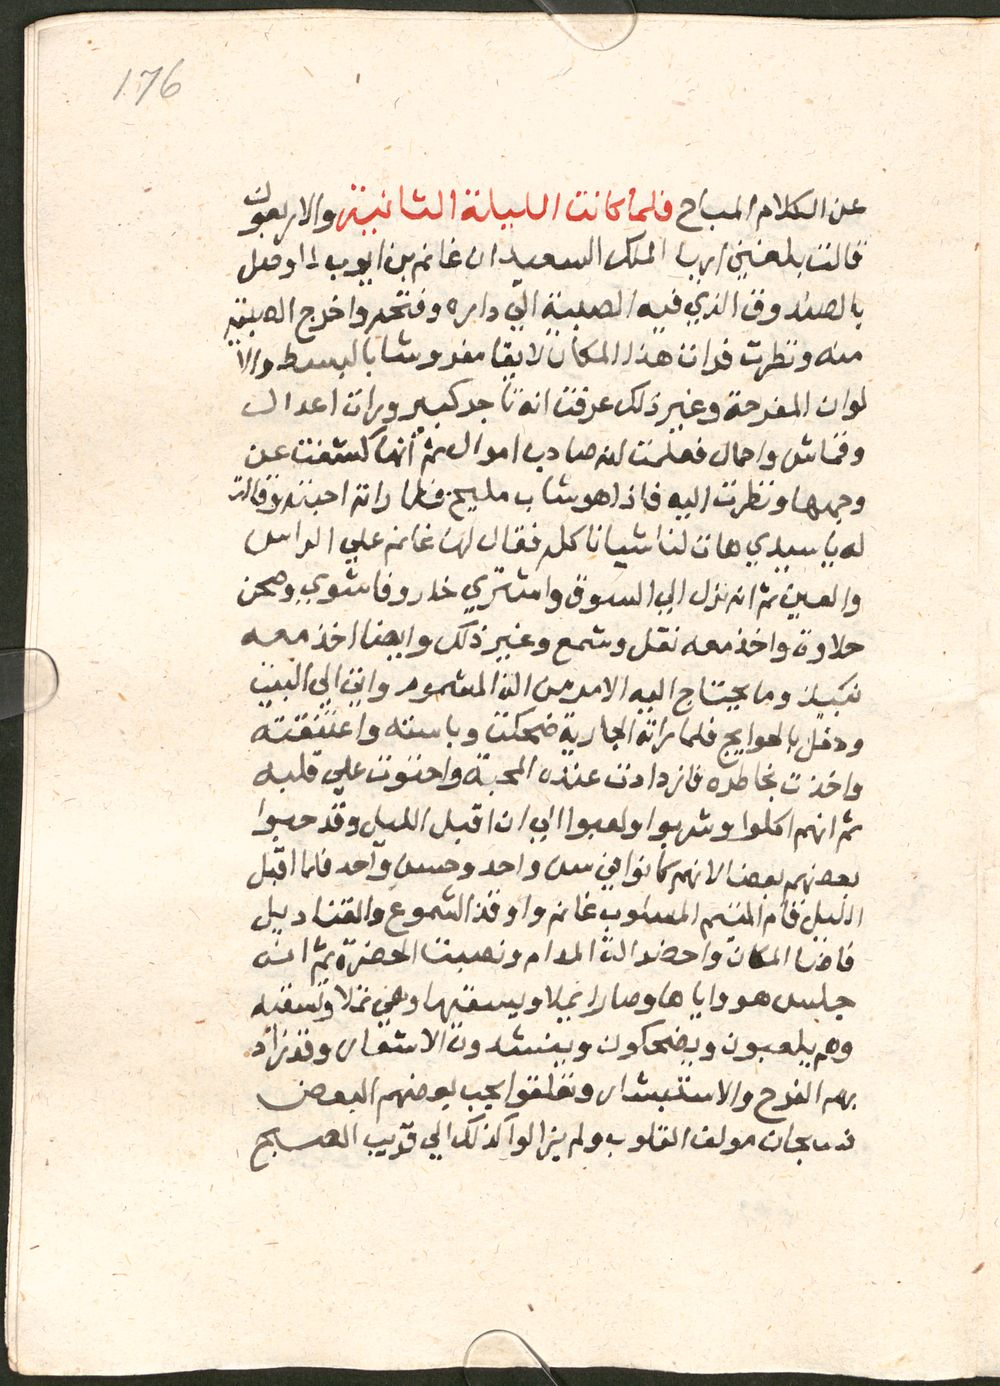 176
عن الكلام المباح فلما كانت الليلة الثانية والاربعون
قالت بلغني ايها الملك السعيد ان غانم بن ايوب لما وصل
بالصندوق الذي فيه الصبية الي داره وفتحه واخرج الصبية
منه ونظرت فرات هذا المكان لايقا مفروشا بالبسط والا
لوان المفرحة وغير ذلك عرفت انه تاجر كبير ورات اعدال
وقماش واحمال فعلمت انه صاحب اموال ثم انها كشفت عن
وجهها ونظرت اليه فاذا هو شاب مليح فلما راته احبته وقالت
له يا سيدي هات لنا شيا ناكله فقال لها غانم علي الراس
والعين ثم انه نزل الي السوق واشتري خاروفا شوي وصحن
حلاوة واخذ معه نقل وشمع وغير ذلك وايضا اخذ معه
نبيذ وما يحتاج اليه الامر من الة المشموم واتي الي البيت
ودخل بالحوايج فلما راته الجارية ضحكت وباسته واعتنقته
واخذت بخاطره فازدادت عنده المحبة واحتوت علي قلبه
ثم انهم اكلوا وشربوا ولعبوا الي ان اقبل الليل وقد حبوا
بعضهم بعضا لانهم كانوا في سن واحد وحسن واحد فلما اقبل
الليل قام المتيم المسلوب غانم واوقد الشموع والقناديل
فاضا المكان واحضر الة المدام ونصبت الحضرة ثم انه
جلس هو واياها وصار يملا ويسقيها وهي تملا وتسقيه
وهم يلعبون ويضحكون وينشدون الاشعار وقد زاد
بهم الفرح والاستبشار وتعلقوا بحب بعضهم البعض
فسبحان مولف القلوب ولم يزالوا كذلك الي قريب الصبح